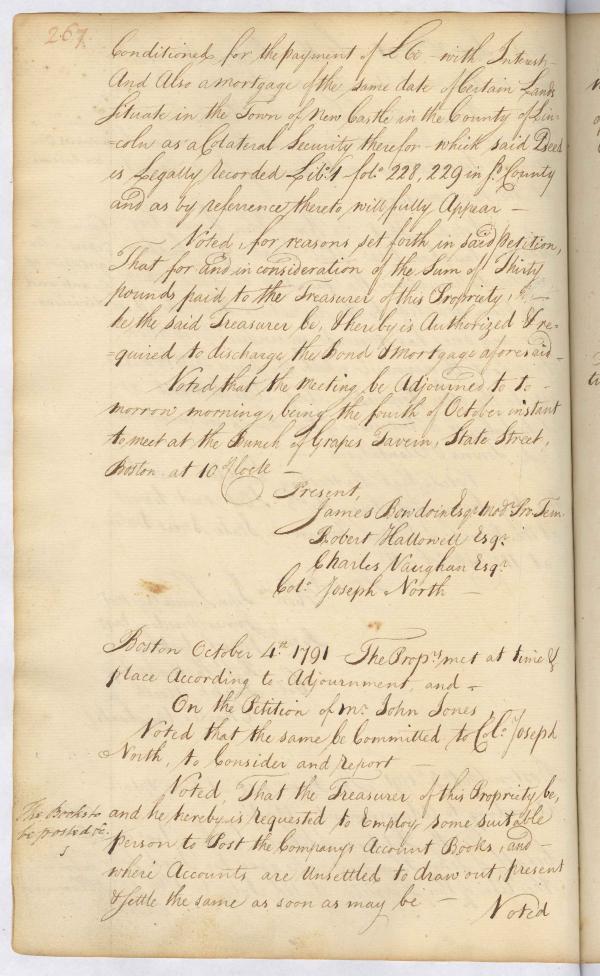 267.
Conditioned for the payment of with Interest
And Also a mortgage of the same date of Certain Lands
Situate in the Town of New Castle in the County of Lin-
=coln as a Colateral Security therefor - which said Deed
is Legally recorded Lib.o 1 folo. 228, 229 in sd. County
and as by referrence thereto will fully Appear -
Voted, for reasons set forth in said Petition,
That for and in consideration of the Sum of Thirty
pounds paid to the Treasurer of this Propriety, -
he the said Treasurer be, & hereby is Authorized & re=
=quired to discharge the Bond & Mortgage aforesaid -
Voted that the meeting be Adjourned to to-
morrow morning, being the fourth of October instant
to meet at the Bunch of Grapes Tavern, State Street,
Boston at 10 oClock -
Present,
James Bowdoin Esqr. Modr. Pro. Tem.
Robert Hallowell Esqr.
Charles Vaughan Esqr.
Colo. Joseph North -
Boston October 4th. 1791 - The Propys. met at time &
place According to Adjournment, and -
On the Petition of Mr. John Jones
Voted that the same be Committed to Colo. Joseph
North, to Consider and report -
The Books to
be posted &c.
Voted, That the Treasurer of this Propriety be,
and he hereby is requested to employ some suitable
person to Post the Company's Account Books, and -
where Accounts are Unsettled to draw out, present
& settle the same as soon as may be -
Voted